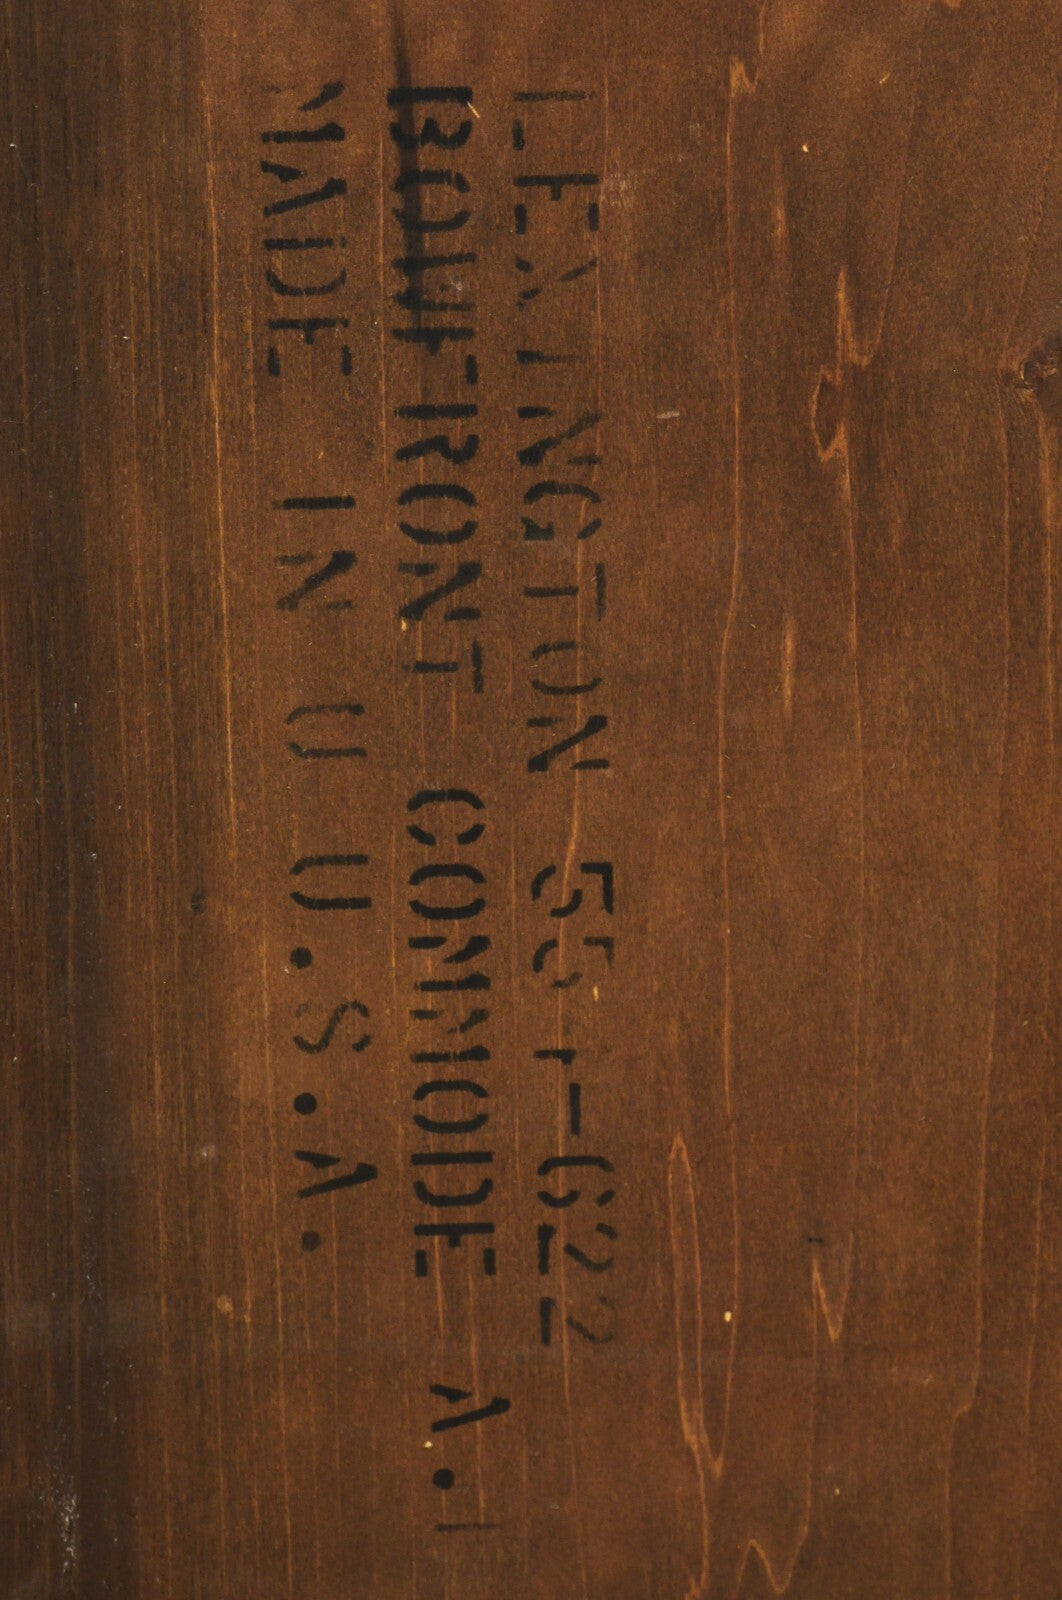 LEXINGTON
BOWFRONT COMMODE A.I
MADE IN U U.S.A.